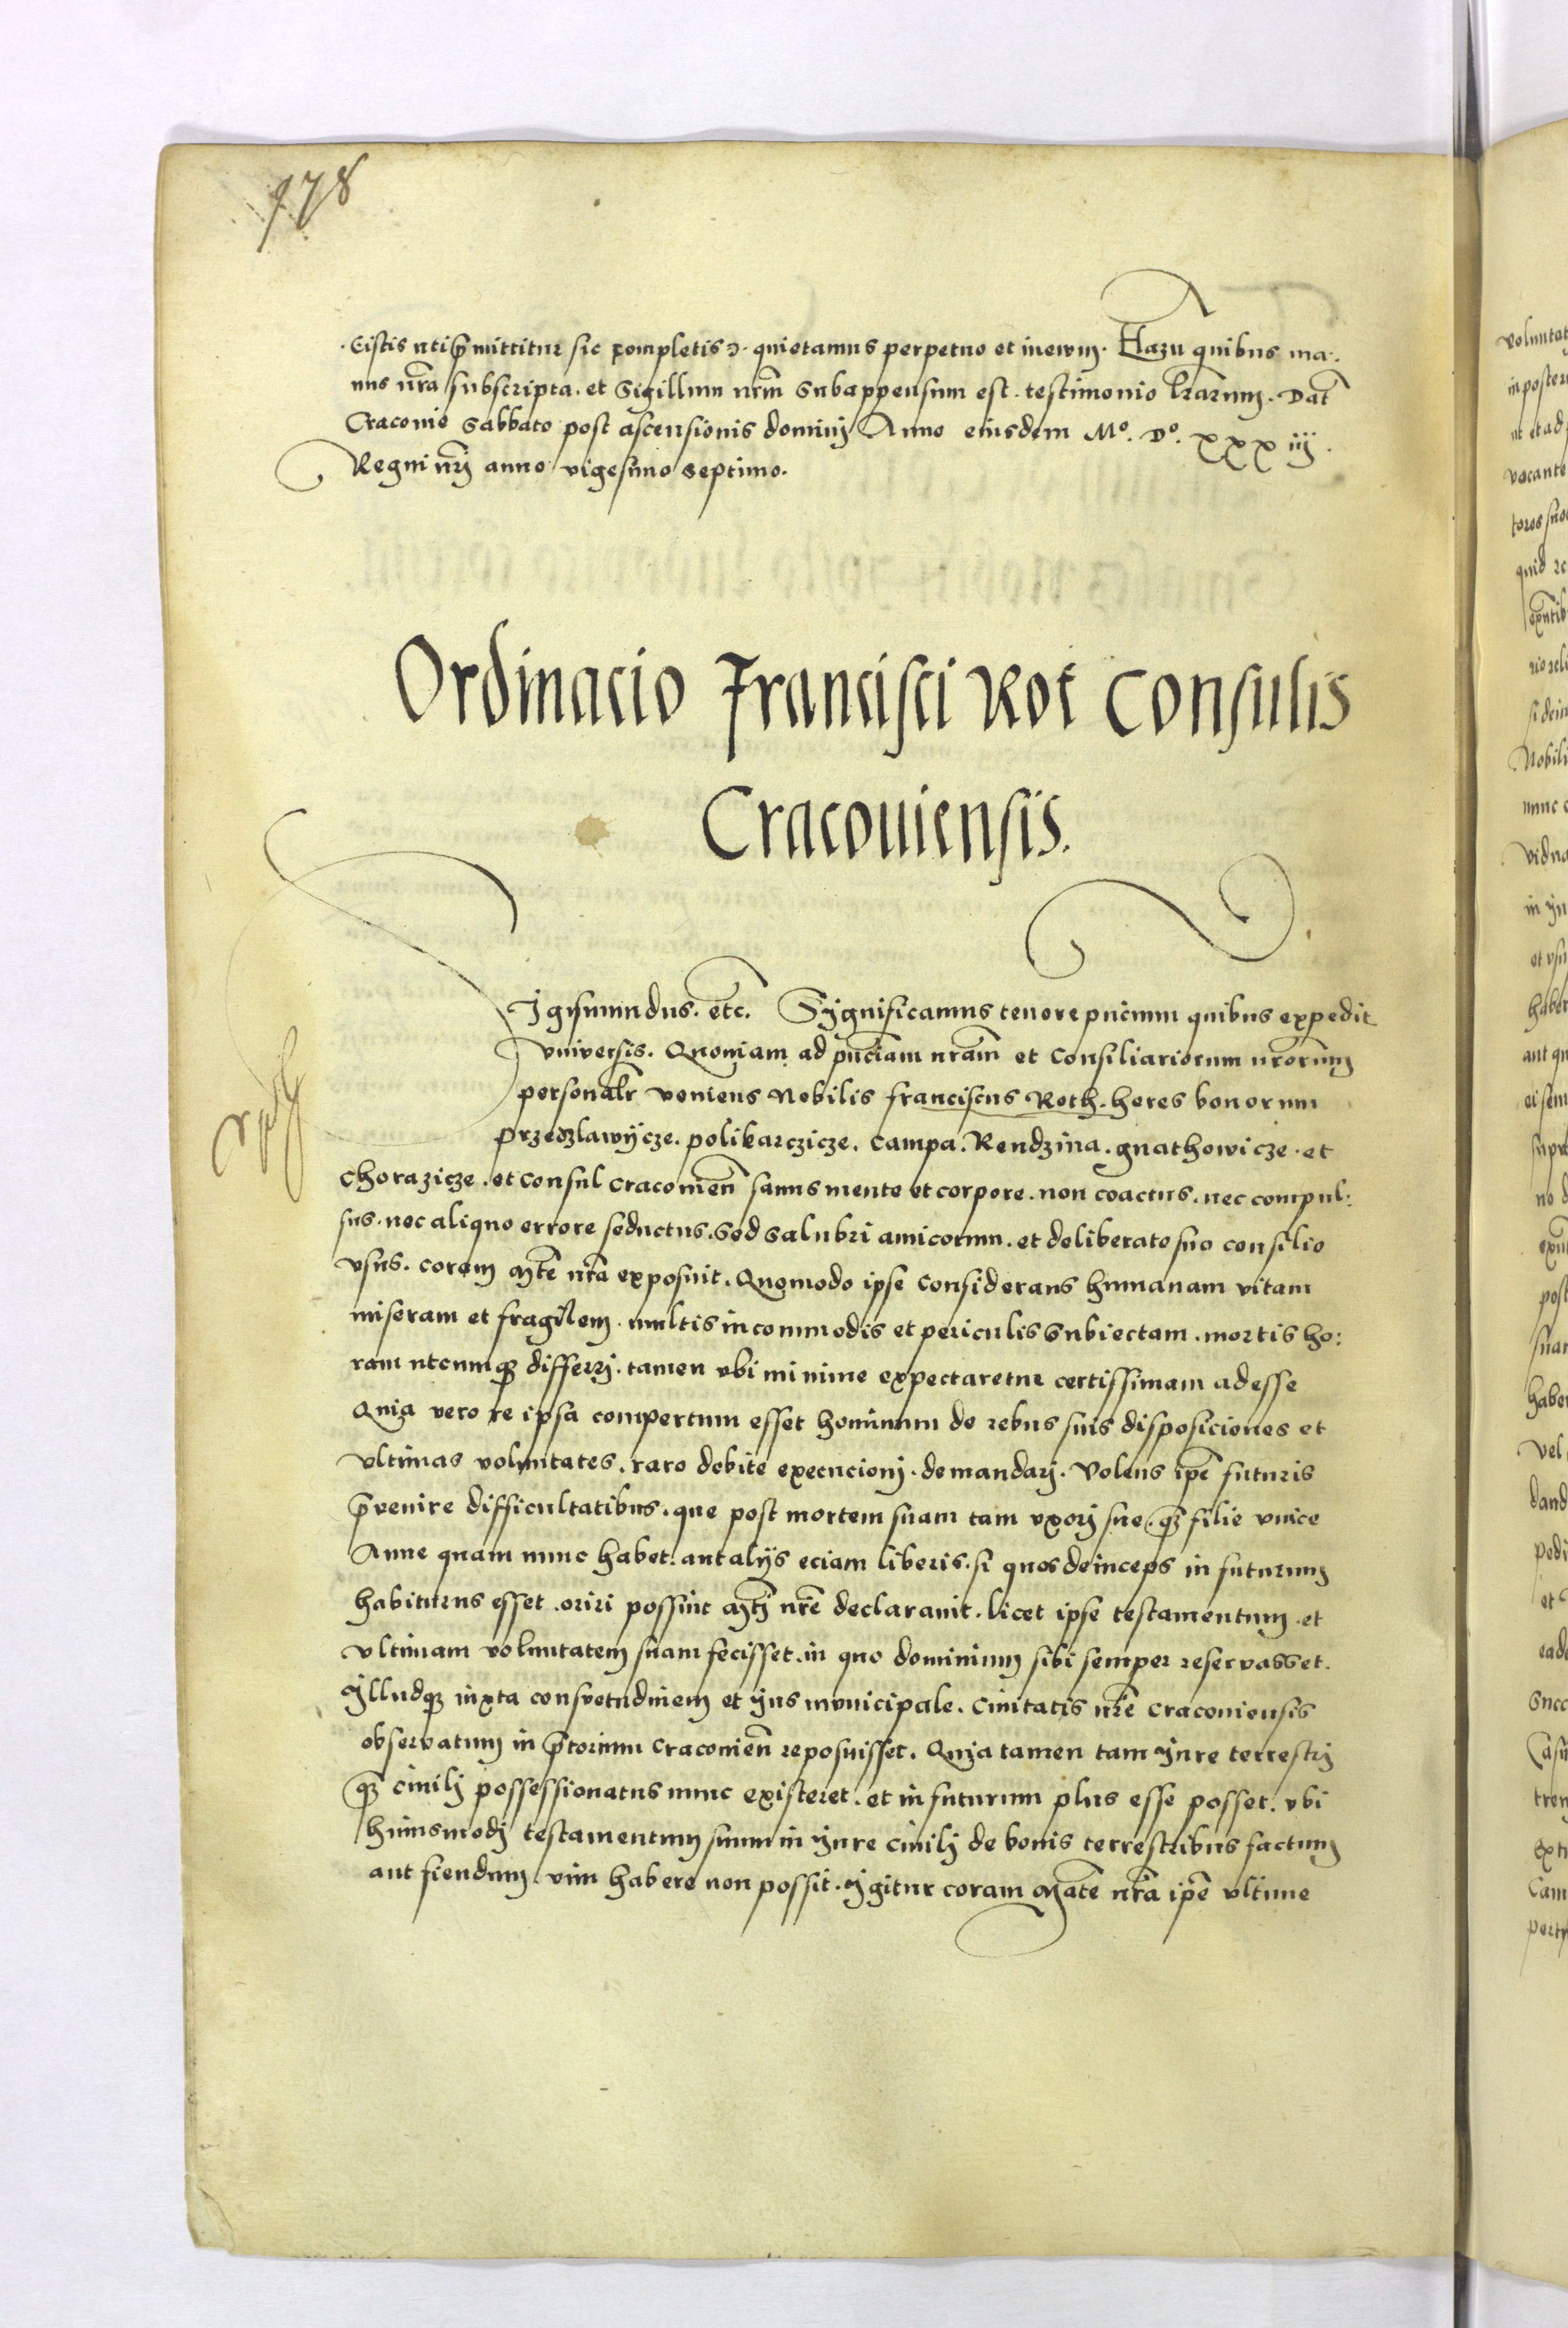 178
Eistis uti p̄mittitur sic completis ɔ. quietamus perpetuo et inewm. Harū quibus ma:
nus nr̄a subscripta. et Sigillum nrm̄ Subappensum est. testimonio lr̄arum. Dat̄
Cracovie Sabbato post ascensionis dominij Anno eiusdem Mo. Do. xxxiij.
Regni nrj̄ anno vigesimo septimo.
Ordinacio Francisci Rot Consulis
Cracouiensis.
Igismundus. etc̄. Significamus tenore pn̄cium quibus expedit
vniversis. Quoniam ad pn̄ciam nr̄am et Consiliariorum nr̄orum
personalr̄ veniens Nobilis franciscus Roth. heres bonorum
przedzlawijcze. polikarczicze. Campa. Rendzina. gnathowicze. et
Chorazicze. et Consul Cracouien̄ sanus mente et corpore. non coactus. nec compul:
sus. nec aliquo errore seductus. Sed Salubri amicorum. et deliberato suo consilio
vsus. coram Mt̄e nr̄a exposuit. Quomodo ipse Considerans humanam vitam
miseram et fragilem. multis incommodis et periculis Subiectam. mortis ho:
ram utcumqȝ differrj. tamen vbi minime expectaretur certissimam adesse
Quia vero re ipsa compertum esset hominum de rebus suis disposiciones et
vltimas voluntates. raro debite execucionj. demandarj. Volens ip̄e futuris
p̄venire difficultatibus. que post mortem suam tam vxorj sue. qȝ filie vnice
Anne quam nunc habet. aut alijs eciam liberis. si quos deinceps in futurum
habiturus esset. oriri possint Mt̄j nr̄e declaravit. licet ipse testamentum. et
vltimam voluntatem suam fecisset. in quo dominium sibi semper reservasset.
Illudqȝ iuxta consvetudinem et ijus municipale. Civitatis nr̄e Cracoviensis
observatum in p̄torium Cracovien̄ reposuisset. Quia tamen tam ijure terrestrj
qȝ civilj possessionatus nunc existeret. et in futurum plus esse posset. vbi
huiusmodj testamentum suum in ijure civilj de bonis terrestribus factum
aut fiendum vim habere non possit. Igitur coram Mat̄e nr̄a ip̄e vltime